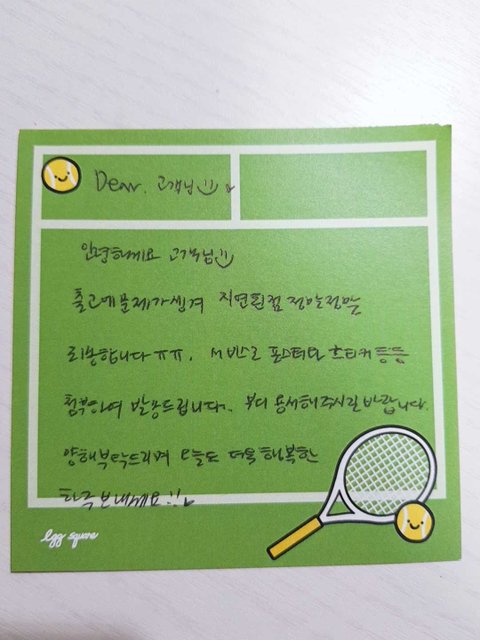 Dear. 고객님
안녕하세요 고객님
출고에 문제가 생겨 지연된점 정말정말
죄송합니다 ㅠㅠ. 서비스로 포스터와 스티커 등등
첨부하여 발송드립니다. 부디 용서해주시길 바랍니다.
양해부탁드리며 오늘도 더욱 행복한
하루 보내세요!!
Egg square